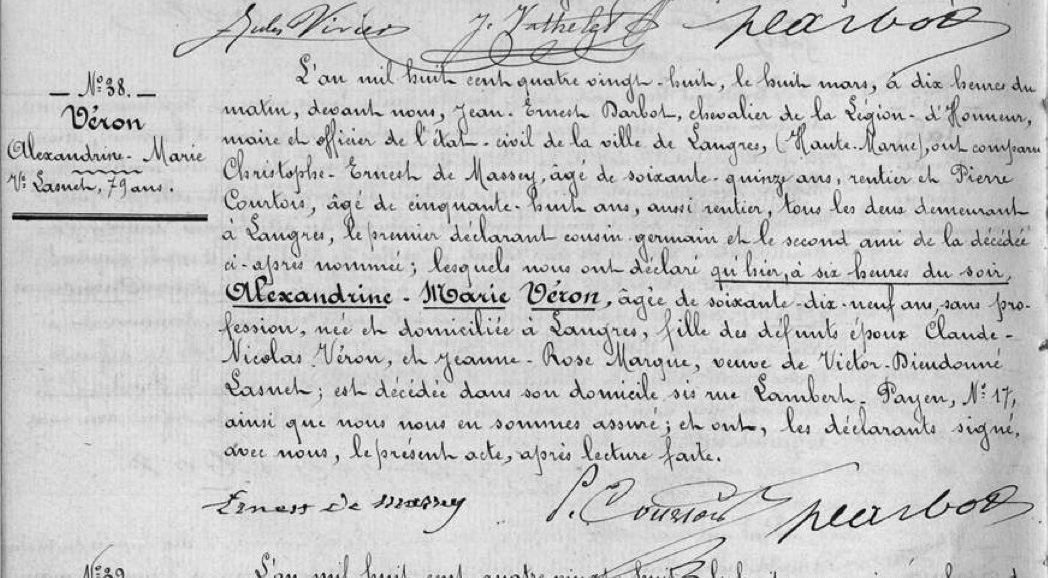 Jules Vivier J. Vathelet
N° 38.
Véron
Alexandrine-Marie
Ve Lasnet, 79 ans.
L'an mil huit cent quatre vingt-huit, le huit mars, à dix heures du
matin, devant nous, Jean-Ernest Darbot, chevalier de la Légion-d'Honneur,
maire et officier de l'état-civil de la ville de Langres, (Haute-Marne), ont comparu
Christophe-Ernest de Massey, âgé de soixante-quinze ans, rentier et Pierre
Courtois, âgé de cinquante-huit ans, aussi rentier, tous les deux demeurant
à Langres, le premier déclarant cousin-germain et le second ami de la décédée
ci-après nommée; lesquels nous ont déclaré qu'hier, à six heures du soir,
Alexandrine-Marie Véron, âgée de soixante-dix-neuf ans, sans pro-
fession, née et domiciliée à Langres, fille des défunts époux Claude-
Nicolas Véron, et Jeanne-Rose Margue, veuve de Victor-Dieudonné
Lasnet; est décédée dans son domicile, sis rue Lambert-Payen, N° 17,
ainsi que nous nous en sommes assuré; et ont, les déclarants signé,
avec nous, le présent acte, après lecture faite.
Ernest de Massey P. Courtois
N° 39
L'an mil huit cent quatre vingt huit, le huit